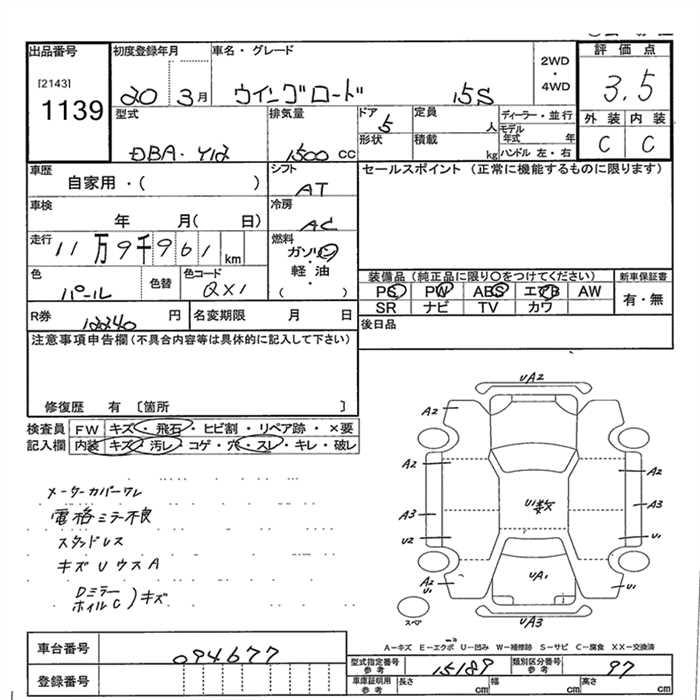 出品番号
[2143]
1139
初度登録年月
20 3月
車名・グレード
ウイングロード 15S
2WD
・
4WD
評価点
3.5
外装 内装
C C
型式
DBA-Y12
排気量
1500 cc
ドア
5
形状
定員
人
積載
kg
ディーラー・並行
モデル
年式 年
ハンドル 左・右
車歴
自家用・( )
シフト
AT
車検
年 月( 日)
冷房
AC
走行
11万9千961 km
燃料
ガソリン
・
軽油
・
( )
色
パール
色替
色コード
QX1
セールスポイント (正常に機能するものに限ります)
装備品(純正品に限り○をつけてください)
PS PW ABS エアB AW
SR ナビ TV カワ
新車保証書
有・無
R券
12240 円
名変期限 月 日
後日品
注意事項申告欄(不具合内容等は具体的に記入して下さい)
修復歴 有 〔箇所 〕
検査員
記入欄
FW キズ・飛石・ヒビ割・リペア跡・×要
内装 キズ・汚レ・コゲ・穴・スレ・キレ・破レ
メーターカバーワレ
電格ミラー不良
スタッドレス
キズUウスA
Dミラー
ホイルC)キズ
UA2
A2
A2
A2
A3
A3
U2
U1
A2
U1
A2
U1
U1数
UA1
UA3
スペ
A－キズ E－エクボ U－凹み W－補修跡 S－サビ C－腐食 XX－交換済
車台番号
094677
登録番号
型式指定番号
参考
15189
類別区分番号
参考
97
車庫証明用
参考
長さ cm
幅 cm
高さ cm